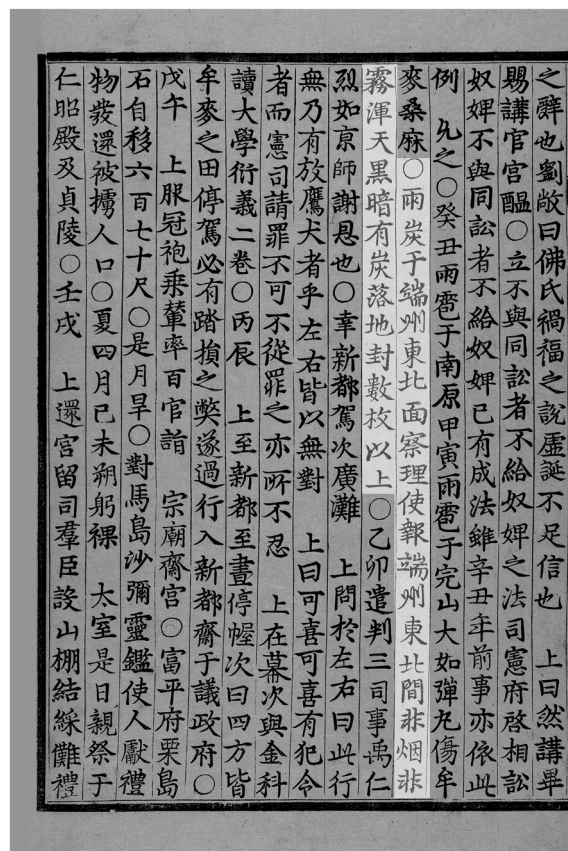 之辭也劉敞曰佛氏禍福之說虛誕不足信也　上曰然講畢
賜講官宮醞○立不與同訟者不給奴婢之法司憲府啓相訟
奴婢不與同訟者不給奴婢已有成法雖辛丑年前事亦依此
例　允之○癸丑雨雹于南原甲寅雨雹于完山大如彈丸傷牟
麥桑麻○雨炭于端州東北面察理使報端州東北間非烟非
霧渾天黑暗有炭落地封數枚以上○乙卯遣判三司事禹仁
烈如京師謝恩也○幸新都駕次廣灘　上問於左右曰此行
無乃有放鷹犬者乎左右皆以無對　上曰可喜可喜有犯令
者而憲司請罪不可不從罪之亦所不忍　上在幕次與金科
讀大學衍義二卷○丙辰　上至新都至晝停幄次曰四方皆
牟麥之田停駕必有踏損之弊遂過行入新都齋于議政府○
戊午　上服冠袍乘輦率百官詣　宗廟齋宮○富平府栗島
石自移六百七十尺○是月旱○對馬島沙彌靈鑑使人獻禮
物發還被擄人口○夏四月己未朔躬祼　太室是日親祭于
仁昭殿及貞陵○壬戌　上還宮留司羣臣設山棚結綵儺禮